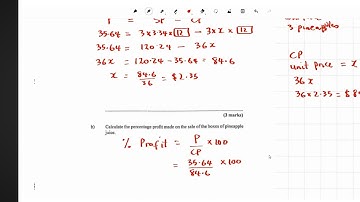 P = SP - CP
35.64 = 3×3.34×12 → 3×x×12
35.64 = 120.24 - 36x
36x = 120.24 - 35.64 = 84.6
x = 84.6/36 = $2.35
(3 marks)
b) Calculate the percentage profit made on the sale of the boxes of pineapple
juice.
% Profit = P/CP ×100
= 35.64/84.6 ×100
3 pineapples
CP
unit price = x
36x
36×2.35 = $8